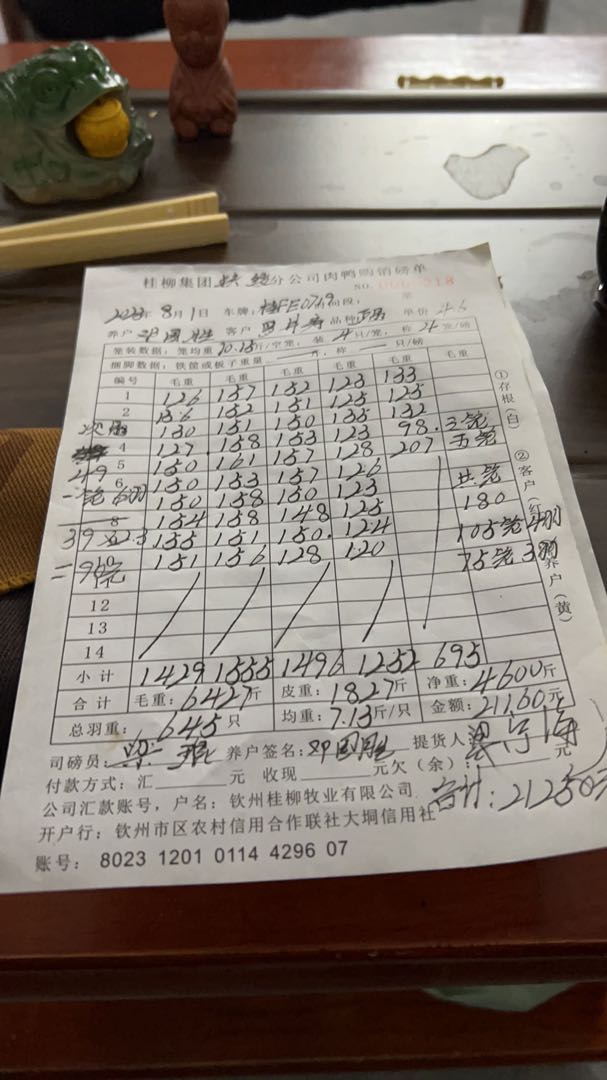 桂柳集团 分公司肉鸭购销磅单
NO.
8月1日 车牌:桂FE0719 时间段:
养户 客户 品种 单价 4.6
笼装数据:笼均重 10.15斤/空笼,装 4只/笼,称 笼/磅
捆脚数据:铁筐或板子重量 斤,称 只/磅
编号 毛重 毛重 毛重 毛重 毛重 毛重
1 126 157 152 123 133
2 136 152 151 125 125
130 151 150 135 132
4 127 158 153 123 98. 三笼
5 150 161 157 128 207 五笼
6 150 153 157 126 共笼
150 158 150 123 180
8 154 158 148 125
155 151 150 124 105笼4羽
151 156 128 120 75笼3羽
11
12
13
14
小计 1429 1555 1496 1252 695
合计 毛重:6427斤 皮重:1827斤 净重:4600斤
总羽重:645只 均重:7.13斤/只 金额:21160元
司磅员: 养户签名:邓国胜 提货人:
付款方式:汇 元 收现 元欠(余): 元
公司汇款账号,户名:钦州桂柳牧业有限公司 合计:21250元
开户行:钦州市区农村信用合作联社大垌信用社
账号:8023 1201 0114 4296 07
①存根(白) ②客户(红) 养户(黄)